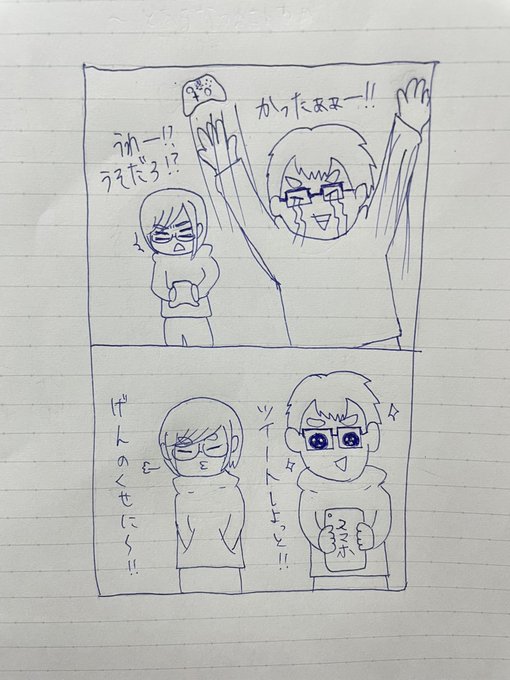 かったぁぁー!!
うわー!?
うそだろ!?
ツイートしよっと!!
スマホ
げんのくせに〜!!